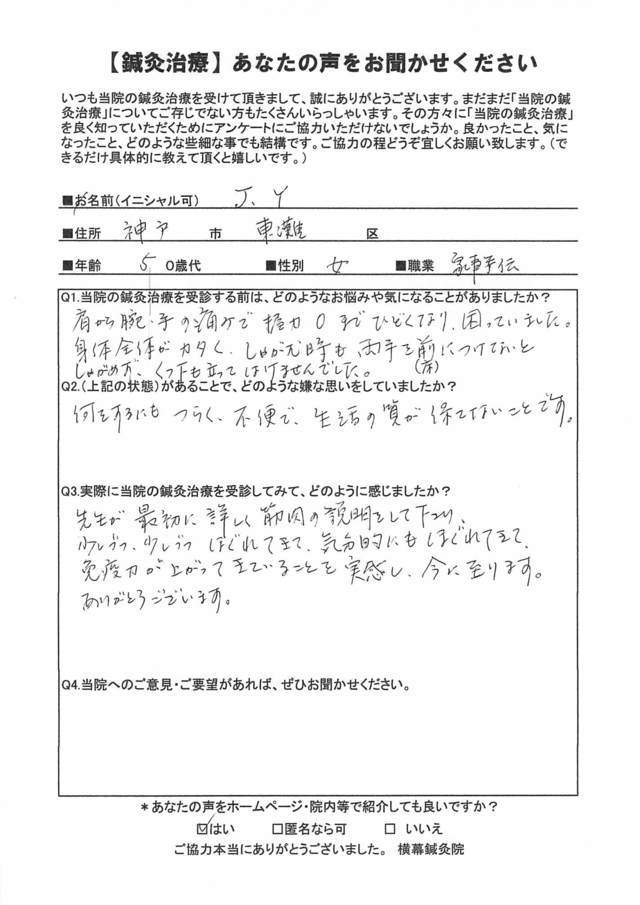 【鍼灸治療】あなたの声をお聞かせください
いつも当院の鍼灸治療を受けて頂きまして、誠にありがとうございます。まだまだ「当院の鍼
灸治療」についてご存じでない方もたくさんいらっしゃいます。その方々に「当院の鍼灸治療」
を良く知っていただくためにアンケートにご協力いただけないでしょうか。良かったこと、気に
なったこと、どのような些細な事でも結構です。ご協力の程どうぞ宜しくお願い致します。（で
きるだけ具体的に教えて頂くと嬉しいです。）
■お名前（イニシャル可） J.Y
■住所 神戸 市 東灘 区
■年齢 5 0歳代 ■性別 女 ■職業 家事手伝
Q1.当院の鍼灸治療を受診する前は、どのようなお悩みや気になることがありましたか？
肩から腕・手の痛みで握力0までひどくなり、困っていました。
身体全体がカタく、しゃがむ時も両手を前（床）につけないと
しゃがめず、くつ下も立ってはけませんでした。
Q2.（上記の状態）があることで、どのような嫌な思いをしていましたか？
何をするにもつらく、不便で、生活の質が保てないことです。
Q3.実際に当院の鍼灸治療を受診してみて、どのように感じましたか？
先生が最初に詳しく筋肉の説明をして下さり、
少しづつ、少しづつほぐれてきて、気分的にもほぐれてきて、
免疫力が上がってきていることを実感し、今に至ります。
ありがとうございます。
Q4.当院へのご意見・ご要望があれば、ぜひお聞かせください。
＊あなたの声をホームページ・院内等で紹介しても良いですか？
☑はい □匿名なら可 □ いいえ
ご協力本当にありがとうございました。 横幕鍼灸院